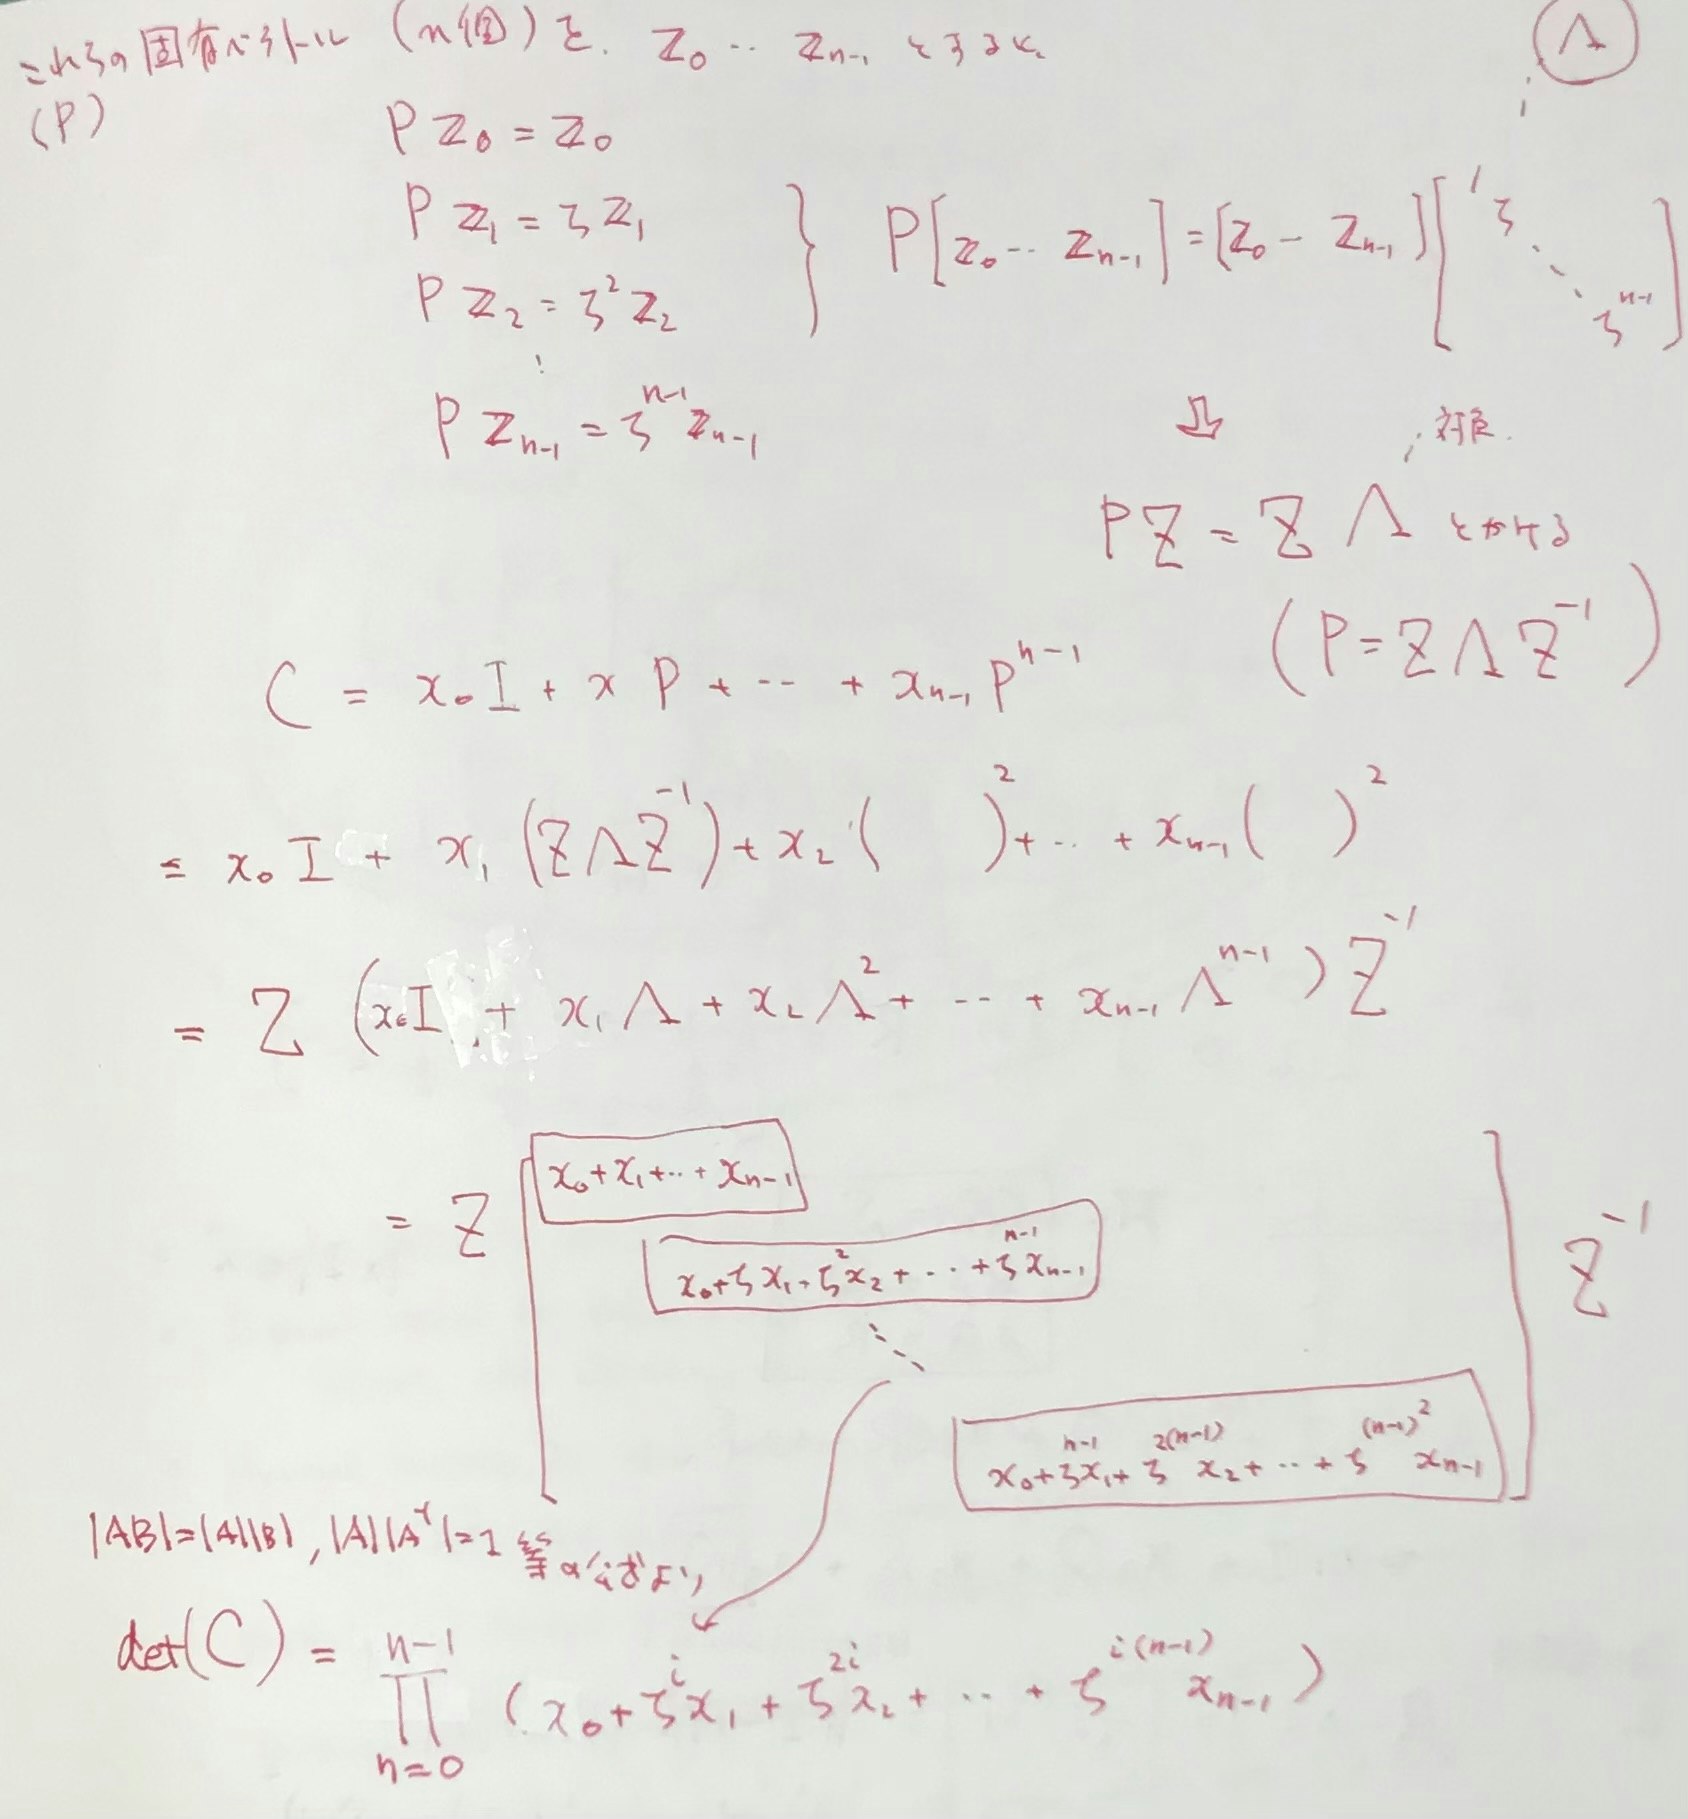 これらの固有ベクトル (n個) を、 Z₀ ‥ Zₙ₋₁ とすると
(P)
Λ
P Z₀ = Z₀
P Z₁ = ζ Z₁
P Z₂ = ζ² Z₂
⋮
P Zₙ₋₁ = ζⁿ⁻¹ Zₙ₋₁
} P[Z₀ ‥ Zₙ₋₁] = [Z₀ – Zₙ₋₁] [ 1 ζ ⋱ ζⁿ⁻¹ ]
⇩ 対応
PZ = Z Λ とかける
(P = Z Λ Z⁻¹)
C = x₀I + x P + ‥ + xₙ₋₁ Pⁿ⁻¹
= x₀ I + x₁ (Z Λ Z⁻¹) + x₂ ( )² + ‥ + xₙ₋₁ ( )²
= Z (x₀I + x₁ Λ + x₂ Λ² + ‥ + xₙ₋₁ Λⁿ⁻¹) Z⁻¹
= Z [ x₀ + x₁ + ‥ + xₙ₋₁
x₀ + ζx₁ + ζ²x₂ + ‥ + ζⁿ⁻¹xₙ₋₁
⋱
x₀ + ζⁿ⁻¹x₁ + ζ²⁽ⁿ⁻¹⁾ x₂ + ‥ + ζ^{(n-1)²} xₙ₋₁ ] Z⁻¹
|AB| = |A||B| , |A||A⁻¹| = 1 等の公式より
det(C) = ∏_{n=0}^{n-1} (x₀ + ζⁱx₁ + ζ²ⁱx₂ + ‥ + ζ^{i(n-1)} xₙ₋₁)